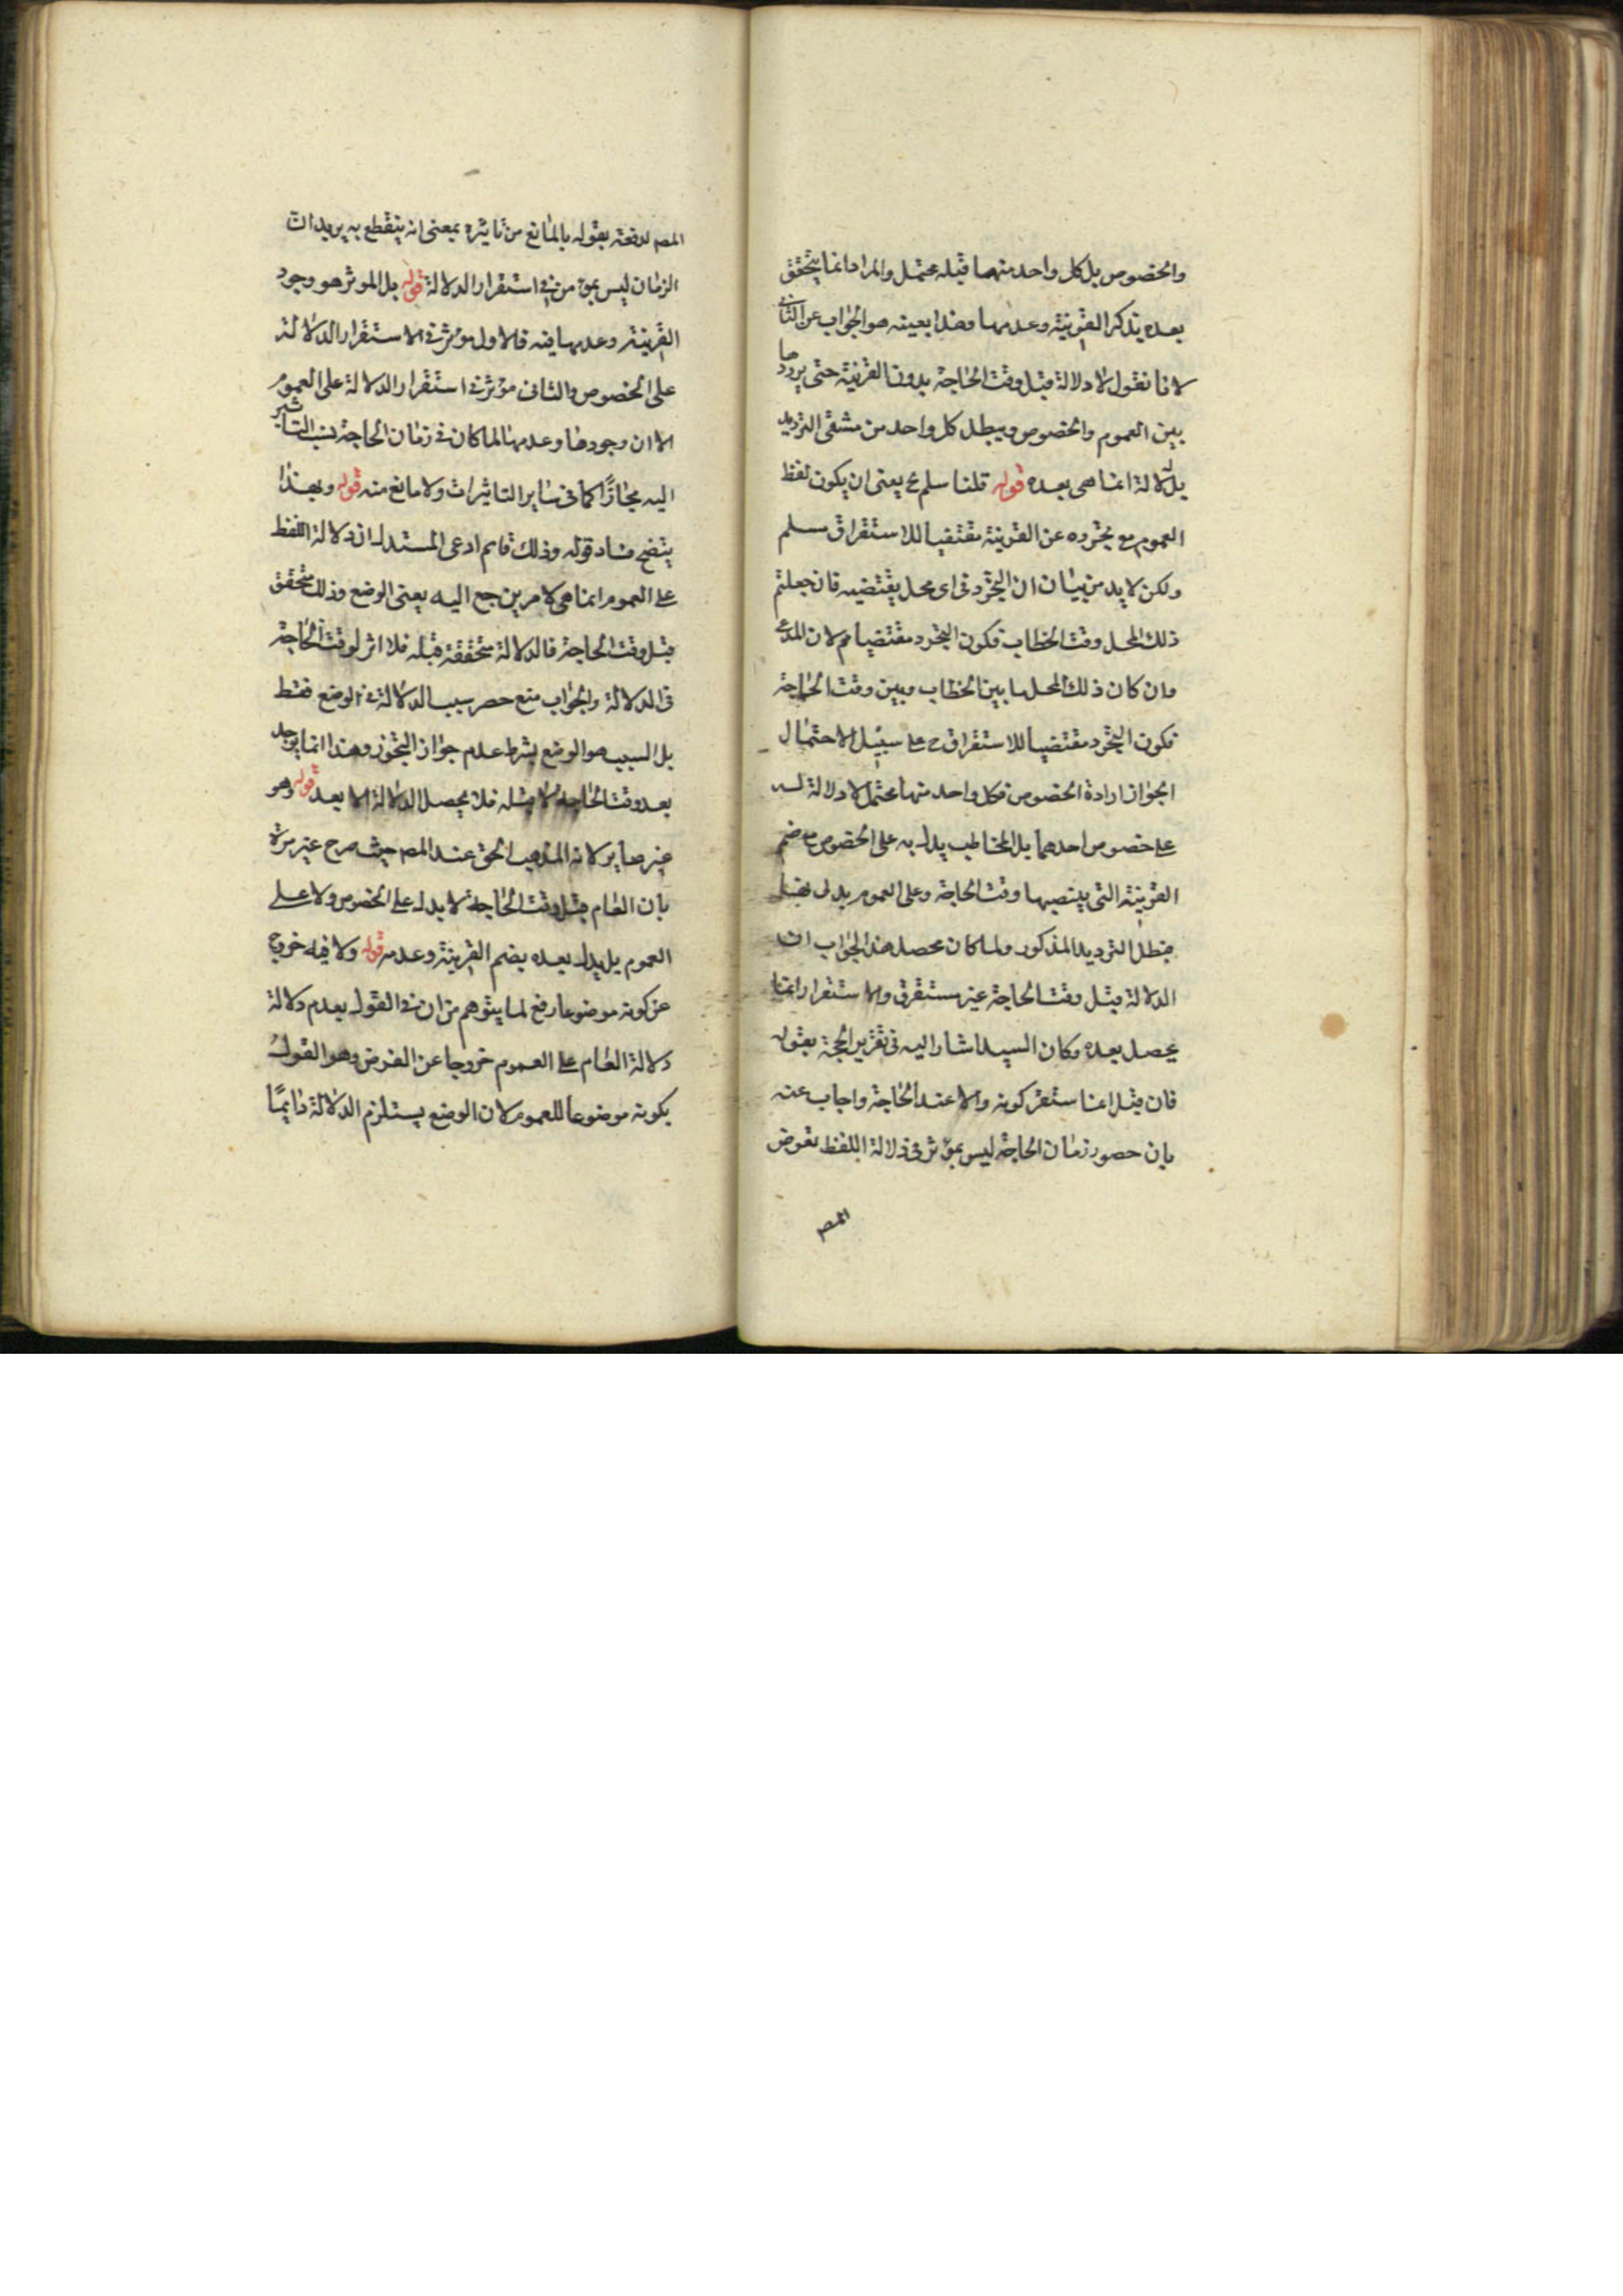 والخصوص بل كل واحد منهما قبله محتمل والمراد انما يتحقق
بعده بذكر القرينة وعدمها وهذا بعينه هو الجواب عن الثاني
لانا نقول لا دلالة قبل وقت الحاجة بدون القرينة حتى يرددها
بين العموم والخصوص ويبطل كل واحد من مشقى الترديد
بل الدلالة انما هى بعده قوله قلنا سلم ع يعنى ان يكون لفظ
العموم مع تجرده عن القرينة مقتضيا للاستغراق مسلم
ولكن لا بد من بيان ان التجرد فى اى محل يقتضيه فان جعلتم
ذلك المحل وقت الخطاب فكون التجرد مقتضيا مم لان المدعى
وان كان ذلك المحل ما بين الخطاب وبين وقت الحاجة
فكون التجرد مقتضيا للاستغراق ح على سبيل الاحتمال
لجواز ارادة الخصوص فكل واحد منها محتمل لا دلالة له
على خصوص احدهما بل المخاطب يدل به على الخصوص مع ضم
القرينة التى ينصبها وقت الحاجة وعلى العموم بدل
فبطل الترديد المذكور ولما كان محصل هذا الجواب ان
الدلالة قبل وقت الحاجة غير مستقرة والاستقرار انما
يحصل بعده وكان السيد اشار اليه فى تقرير الحجة بقوله
فان قيل انما استقر كونه دالا عند الحاجة واجاب عنه
بان حصور زمان الحاجة ليس بمؤثر فى دلالة اللفظ تعرض
المصـ
المصـ لدفعه بقوله بالمانع من تاثيره بمعنى انه ينقطع به يريد ان
الزمان ليس بمؤثر فى استقرار الدلالة قوله بل الموثر هو وجود
القرينة وعدمها فيه فالاول مؤثر فى الاستقرار الدلالة
على الخصوص والثانى مؤثر فى استقرار الدلالة على العموم
الا ان وجودها وعدمها لما كان فى زمان الحاجة نسب التاثير
اليه مجازًا كما فى ساير التاثيرات ولا مانع منه قوله وبهذا
يتضح فساد قوله وذلك قايم ادعى المستدل ان دلالة اللفظ
على العموم انما هى لامر يرجع اليه يعنى الوضع وذلك متحقق
قبل وقت الحاجة فالدلالة متحققة قبله فلا اثر لوقت الحاجة
فى الدلالة والجواب منع حصر سبب الدلالة فى الوضع فقط
بل السبب هو الوضع بشرط عدم جواز التجوز وهذا انما يوجد
بعد وقت الحاجة لا قبله فلا يحصل الدلالة الا بعد قوله وهو
غير صاير لانه المذهب الحق عند المصـ حيث صرح غير مرة
بان العام قبل وقت الحاجة لا يدل على الخصوص ولا على
العموم بل يدل بعده بضم القرينة وعدمه قوله ولا فيه خروج
عن كونه موضوعا رفع لما يتوهم من ان فى القول بعدم دلالة
دلالة العام على العموم خروجا عن الفرض وهو القول
بكونه موضوعا للعموم لان الوضع يستلزم الدلالة دايمًا